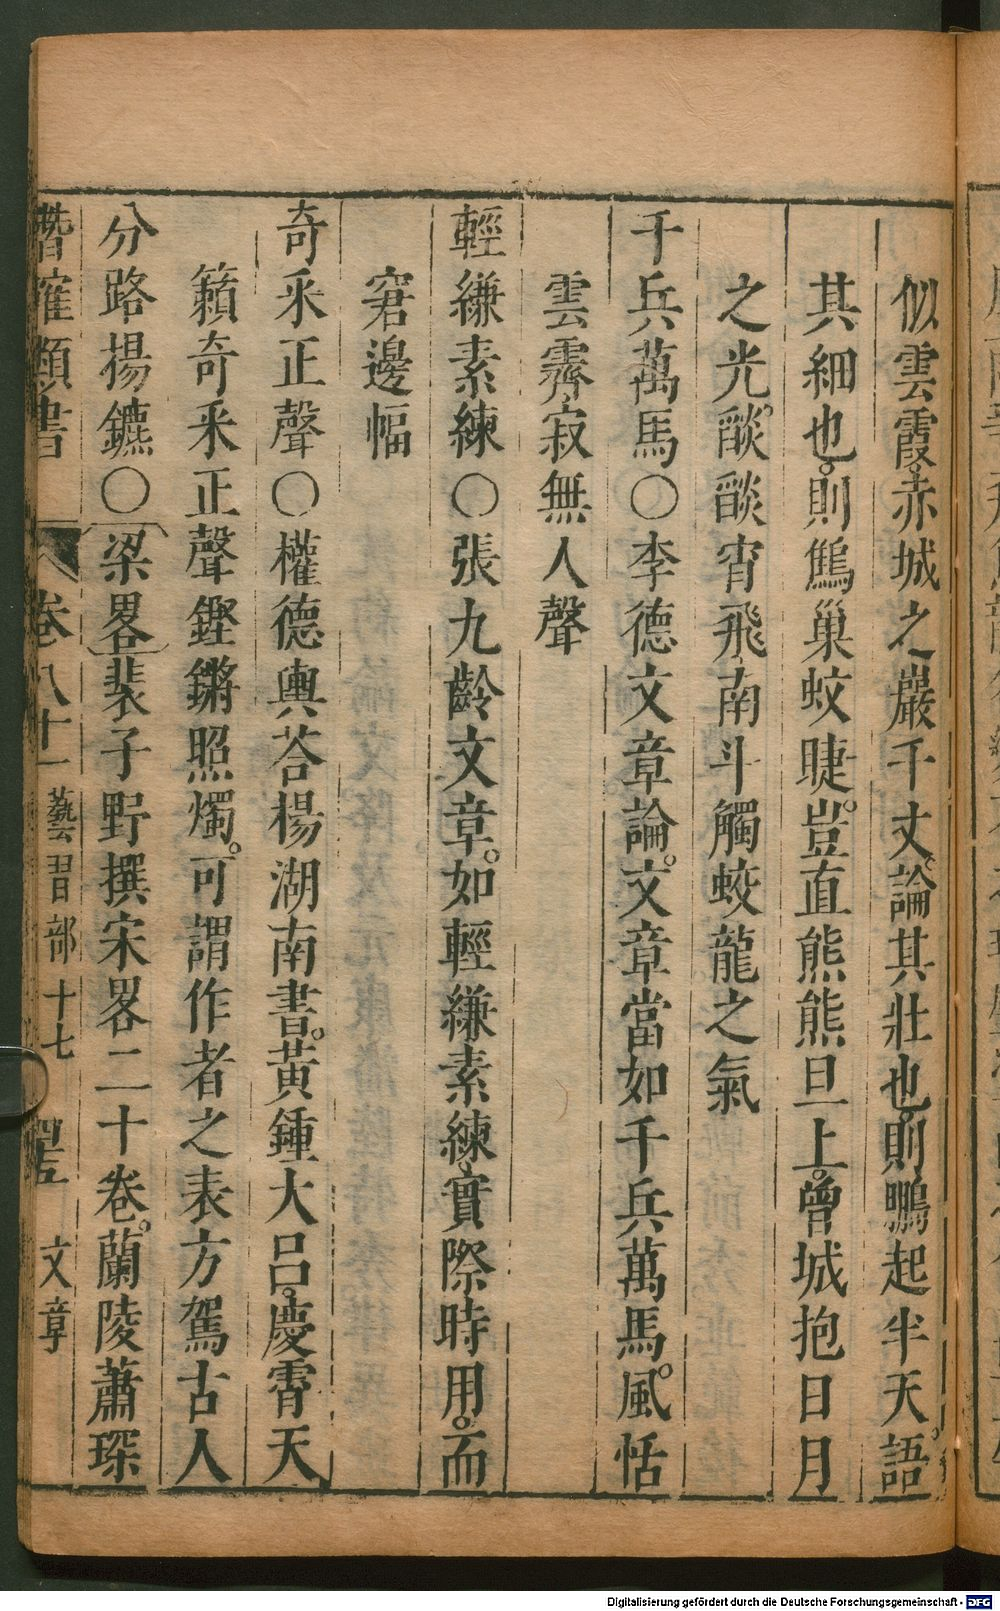 似雲霞赤城之巖千丈論其壯也則鵬起半天語
其細也則鷦巢蚊睫豈直熊熊旦上曾城抱日月
之光燄燄宵飛南斗觸蛟龍之氣
千兵萬馬○李德文章論文章當如千兵萬馬風恬
雲霽寂無人聲
輕縑素練○張九齡文章如輕縑素練實際時用而
窘邊幅
奇采正聲○權德輿荅楊湖南書黃鍾大呂慶霄天
籟奇采正聲鏗鏘照燭可謂作者之表方駕古人
分路揚鑣○梁畧裴子野撰宋畧二十卷蘭陵蕭琛
類書 卷八十一 藝習部十七 文章
Digitalisierung gefördert durch die Deutsche Forschungsgemeinschaft - DFG